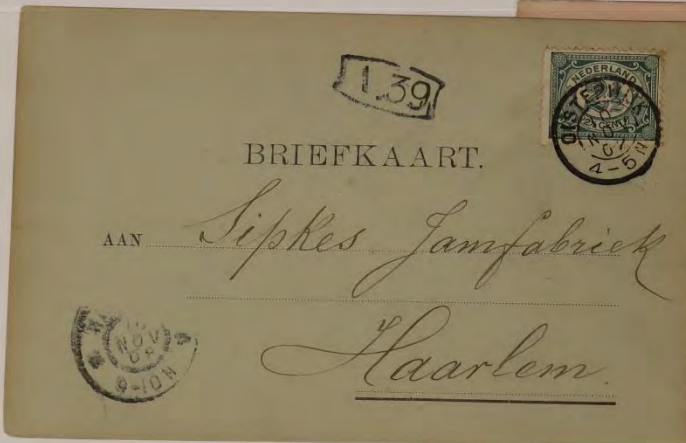 1.39
NEDERLAND
OISTERWIJK
NOV
4-5 N
BRIEFKAART.
AAN Sipkes Jamfabriek
Haarlem.
NOV
9-10 N